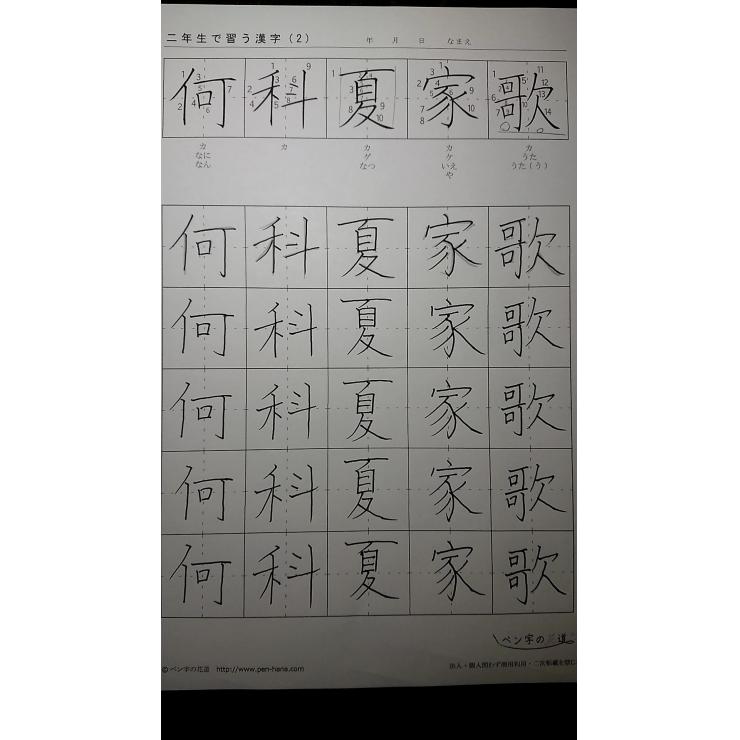 二年生で習う漢字(2) 年 月 日 なまえ
何 科 夏 家 歌
カ カ カ カ カ
なに ゲ ケ うた
なん なつ いえ うた(う)
や
何 科 夏 家 歌
何 科 夏 家 歌
何 科 夏 家 歌
何 科 夏 家 歌
何 科 夏 家 歌
ペン字の花道
© ペン字の花道 http://www.pen-hana.com 法人・個人問わず商用利用・二次転載を禁じ